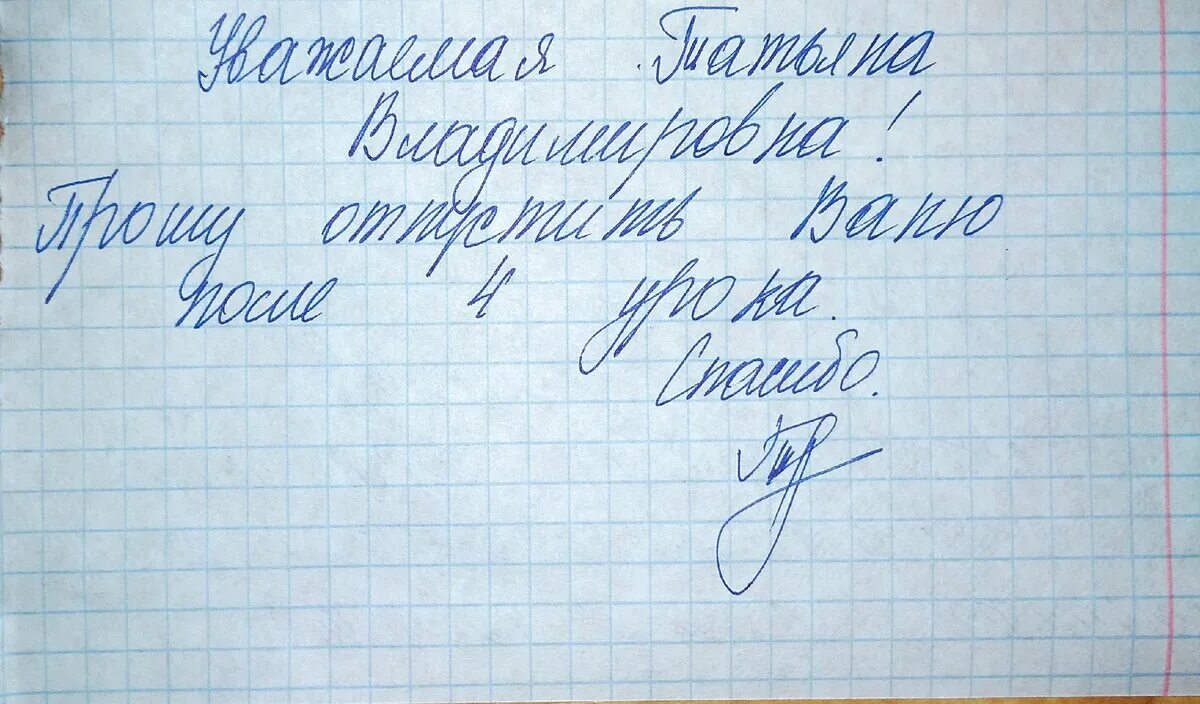 Уважаемая Татьяна
Владимировна!
Прошу отпустить Ваню
после 4 урока.
Спасибо.